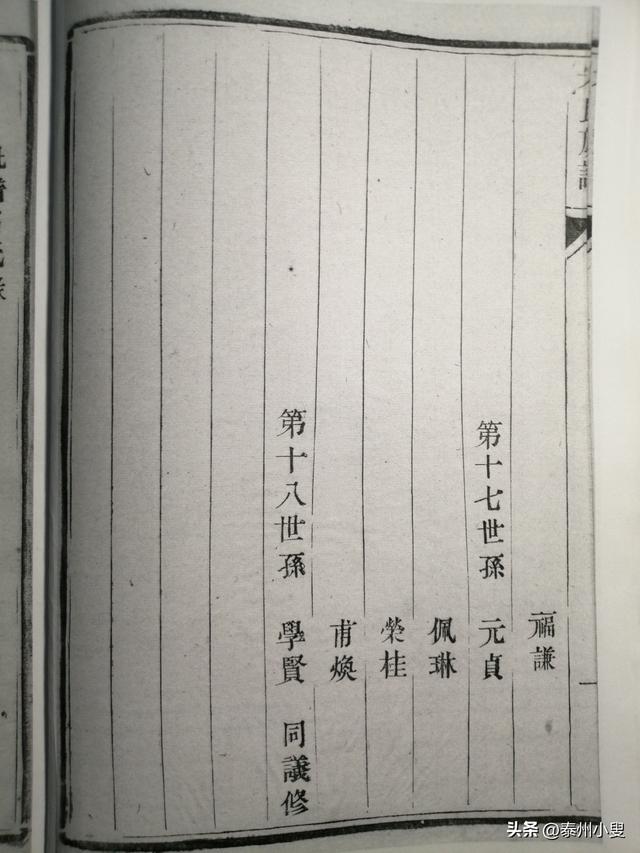 福謙
第十七世孫 元貞
佩琳
榮桂
甫煥
第十八世孫 學賢 同議修
頭条 @泰州小叟